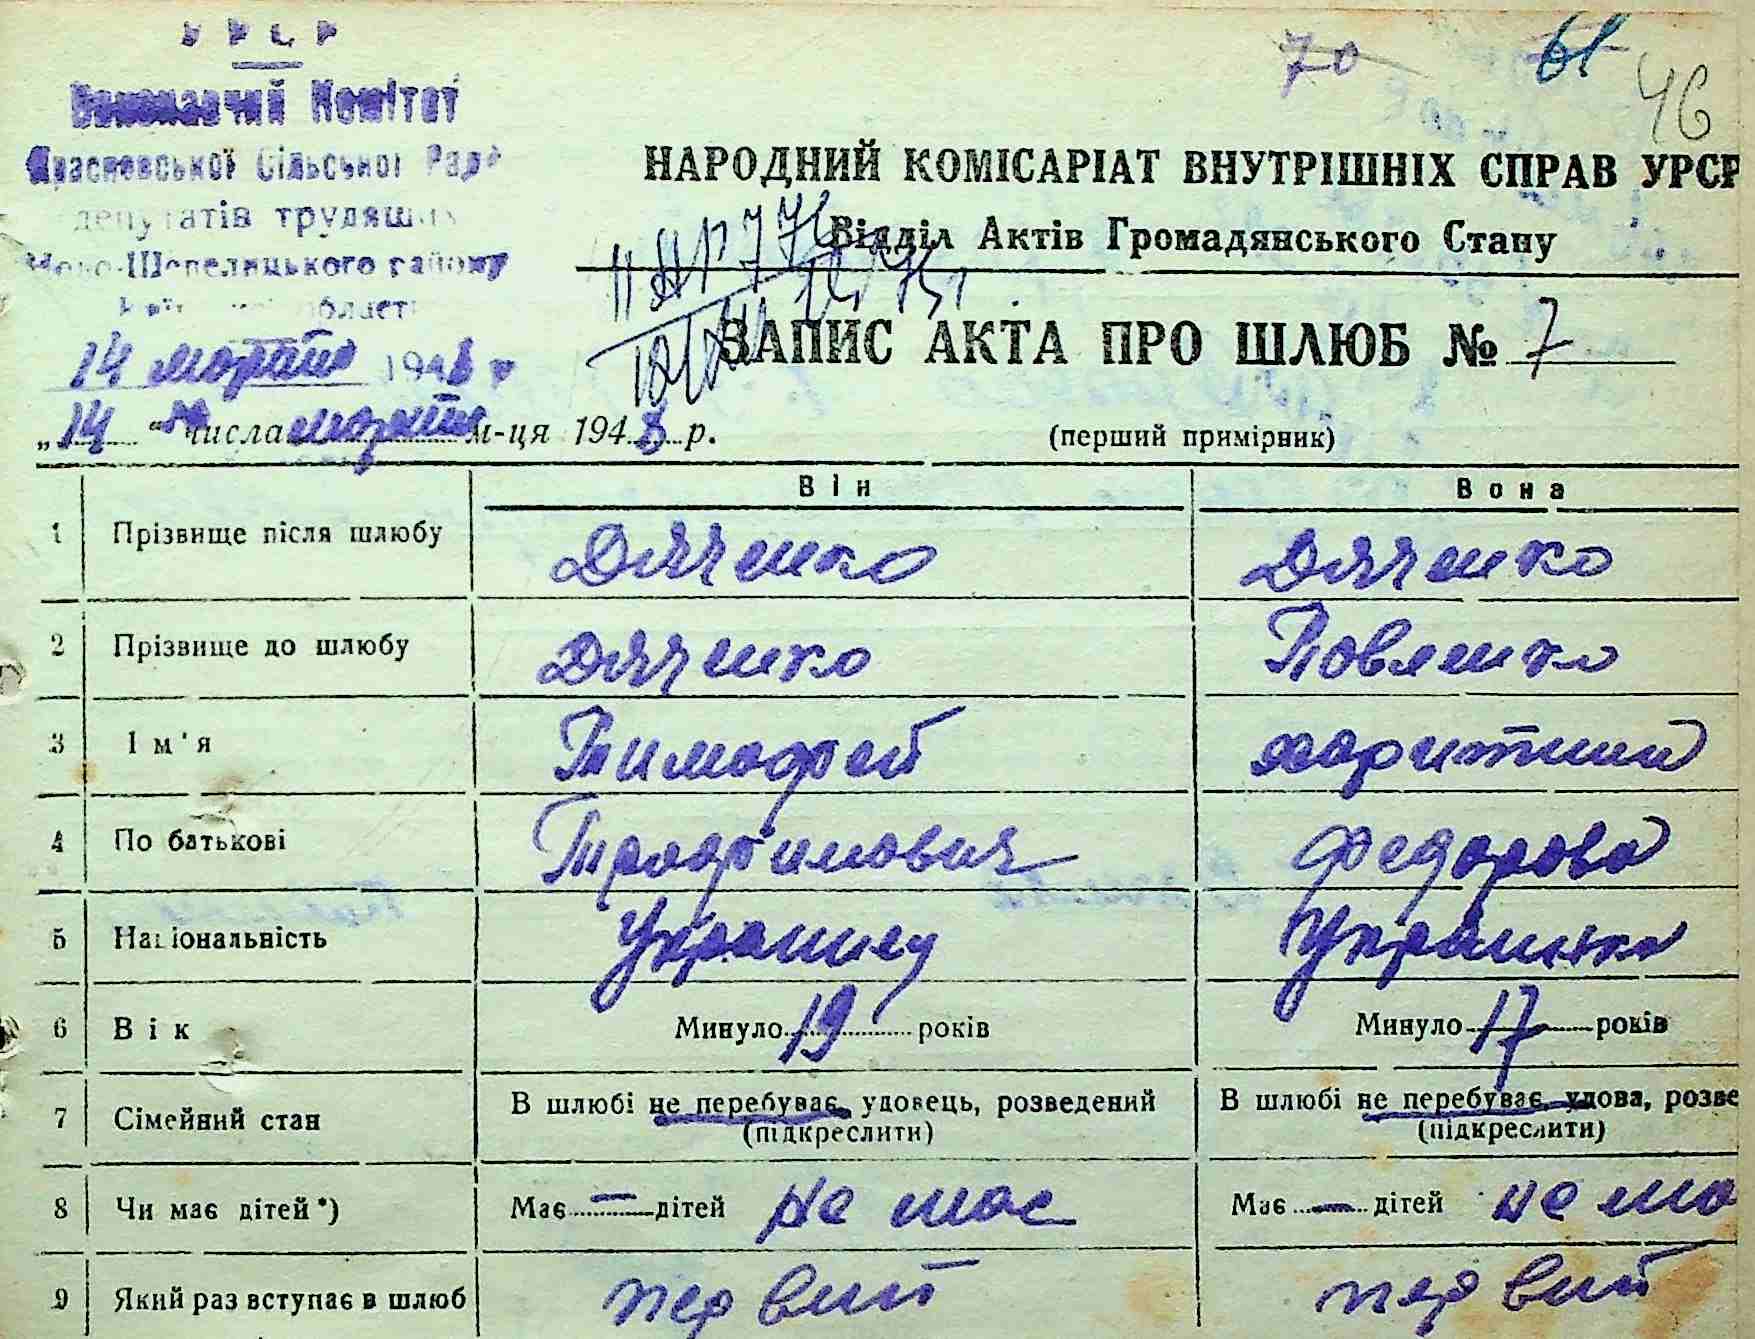 УРСР
Виконавчий Комітет
Красневської Сільської Ради
депутатів трудящих
Ново-Шепелицького району
області
14 марта 1948 р
„14“ числа марта м-ця 1948 р.
70 61 46
НАРОДНИЙ КОМІСАРІАТ ВНУТРІШНІХ СПРАВ УРСР
Відділ Актів Громадянського Стану
ЗАПИС АКТА ПРО ШЛЮБ № 7
(перший примірник)
Він Вона
1 Прізвище після шлюбу Дяченко Дяченко
2 Прізвище до шлюбу Дяченко Повленко
3 Ім'я Тимофей харитини
4 По батькові Трофимович Федорова
5 Національність Украинец Украинка
6 Вік Минуло 19 років Минуло 17 років
7 Сімейний стан В шлюбі не перебуває, удовець, розведений В шлюбі не перебуває, удова, розве
(підкреслити) (підкреслити)
8 Чи має дітей*) Має — дітей не має Має — дітей не ма
9 Який раз вступає в шлюб первий первий